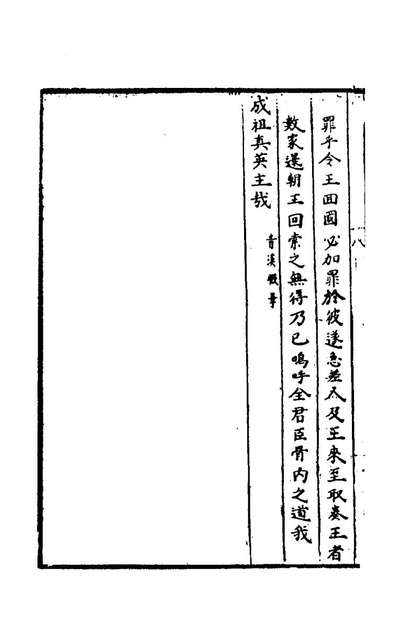 罪乎令王回國必加罪於彼遂急差人及王來至取奏王者
數家還朝王回索之無得乃已嗚呼全君臣骨肉之道我
成祖真英主哉
青溪暇筆
八